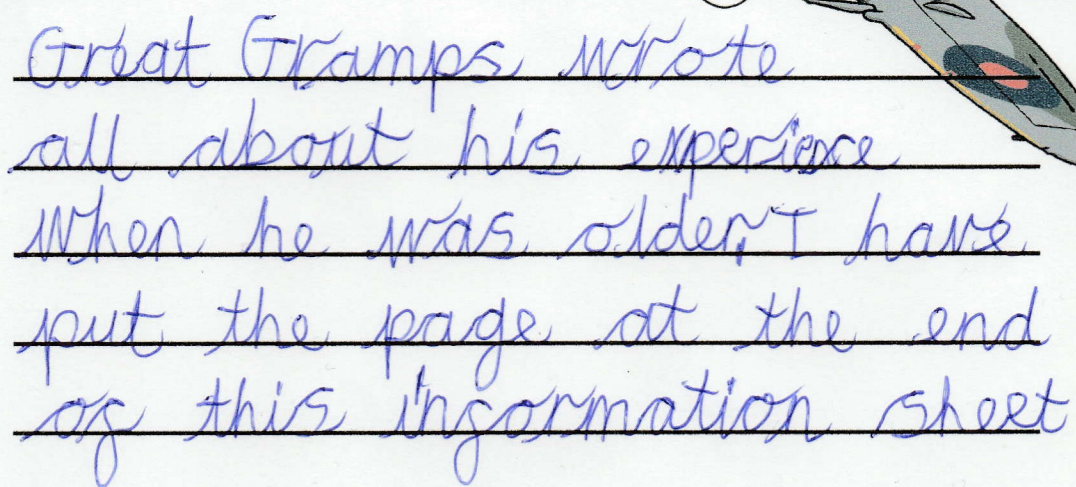 Great Gramps wrote
all about his experience
When he was older, I have
put the page at the end
of this information sheet